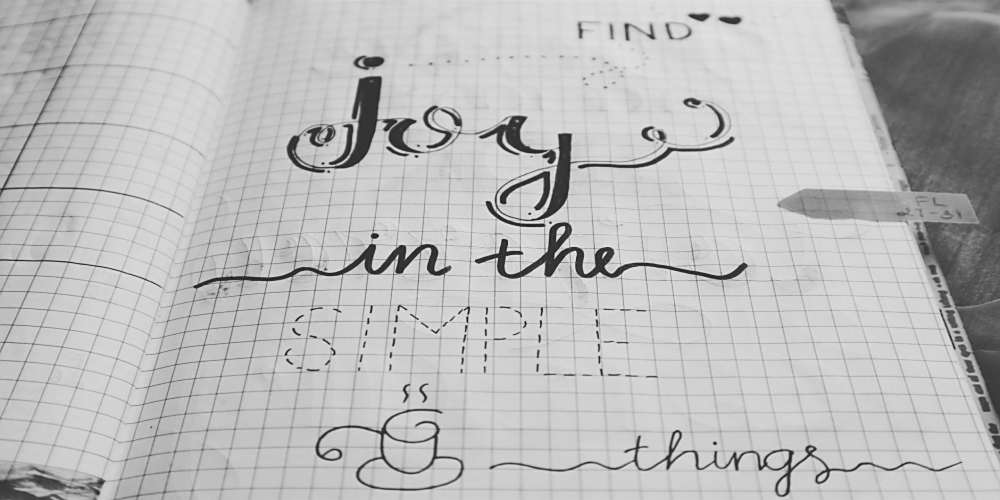 FIND
joy
in the
SIMPLE
things
FL